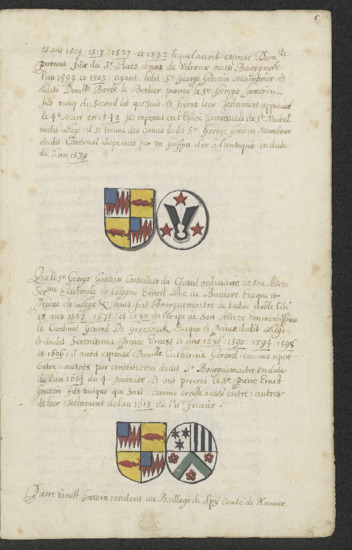 es ans 1509. 1517. 1527. et 1532 lequel avoit espousé Dam.lle
fille du Sr.
l'an 1499 et 1503 ayant ledit Sr. George Goswin
Barbe le Berlier procreé le Sr. George Goswin
fils du second lit qui suit. et firent leur Testament approuvé
le 4e Mars en 1542 Ils reposent en l'Eglise Parroissiale de St. Michel
audit Liege, il se trouve des armes dudit Sr. George Goswin Mambour
dudit Cardinal suportées par un Griffon d'or à l'antique en date
de l'an 1539
Que le Sr. George Goswin Conseillier du Conseil ordinaire de son Alteze
Ser.me Electorale de Cologne Ernest Duc de Baviere Evesque et
Prince de Liege &c. Item fut Bourguemaistre de ladite noble Cité
es ans 1567. 1571. et 1580 du temps de son Alteze Eminentissime
le Cardinal Gerard de Groesbeck Evesque et Prince dudit Liege,
et dudit Serenissime Prince Ernest es ans 1586. 1590. 1594. 1598
et 1606; il avoit espousé Dam.lle Catherine Gerard comme apert
entre autres par constitution dudit Sr. Bourguemaistre en date
de l'an 1614 du 4. Janvier et ont procreé le Sr. Pierre Ernest
Goswin fils unique qui suit. comme conste aussi entre autres
de leur Testament de l'an 1613 de l'11e Fevrier.
Pierre Ernest Goswin resident au Bailliage de Spy Comté de Namur.